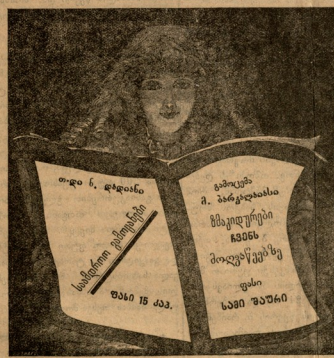 თ-დი ნ. დადიანი
სამდროო გამოცანები
ფასი 15 კაპ.
გამოცემა
მ. გარყალაიასი
ზმაკიდურები
ჩვენს
მოღვაწეებზე
ფასი
სამი შაური